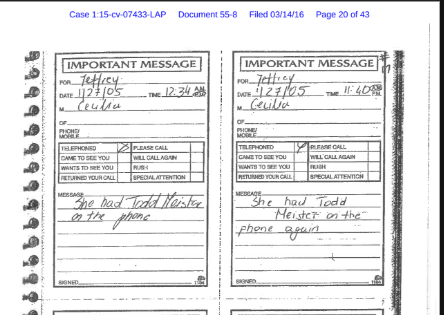 Case 1:15-cv-07433-LAP Document 55-8 Filed 03/14/16 Page 20 of 43
IMPORTANT MESSAGE
FOR Jeffrey
DATE 1/27/05 TIME 12:34
M Cecilia
OF
PHONE/
MOBILE
TELEPHONED PLEASE CALL
CAME TO SEE YOU WILL CALL AGAIN
WANTS TO SEE YOU RUSH
RETURNED YOUR CALL SPECIAL ATTENTION
MESSAGE
She had Todd Meister
on the phone
SIGNED
IMPORTANT MESSAGE
FOR Jeffrey
DATE 1/27/05 TIME 11:40
M Cecilia
OF
PHONE/
MOBILE
TELEPHONED PLEASE CALL
CAME TO SEE YOU WILL CALL AGAIN
WANTS TO SEE YOU RUSH
RETURNED YOUR CALL SPECIAL ATTENTION
MESSAGE
She had Todd
Meister on the
phone again
SIGNED